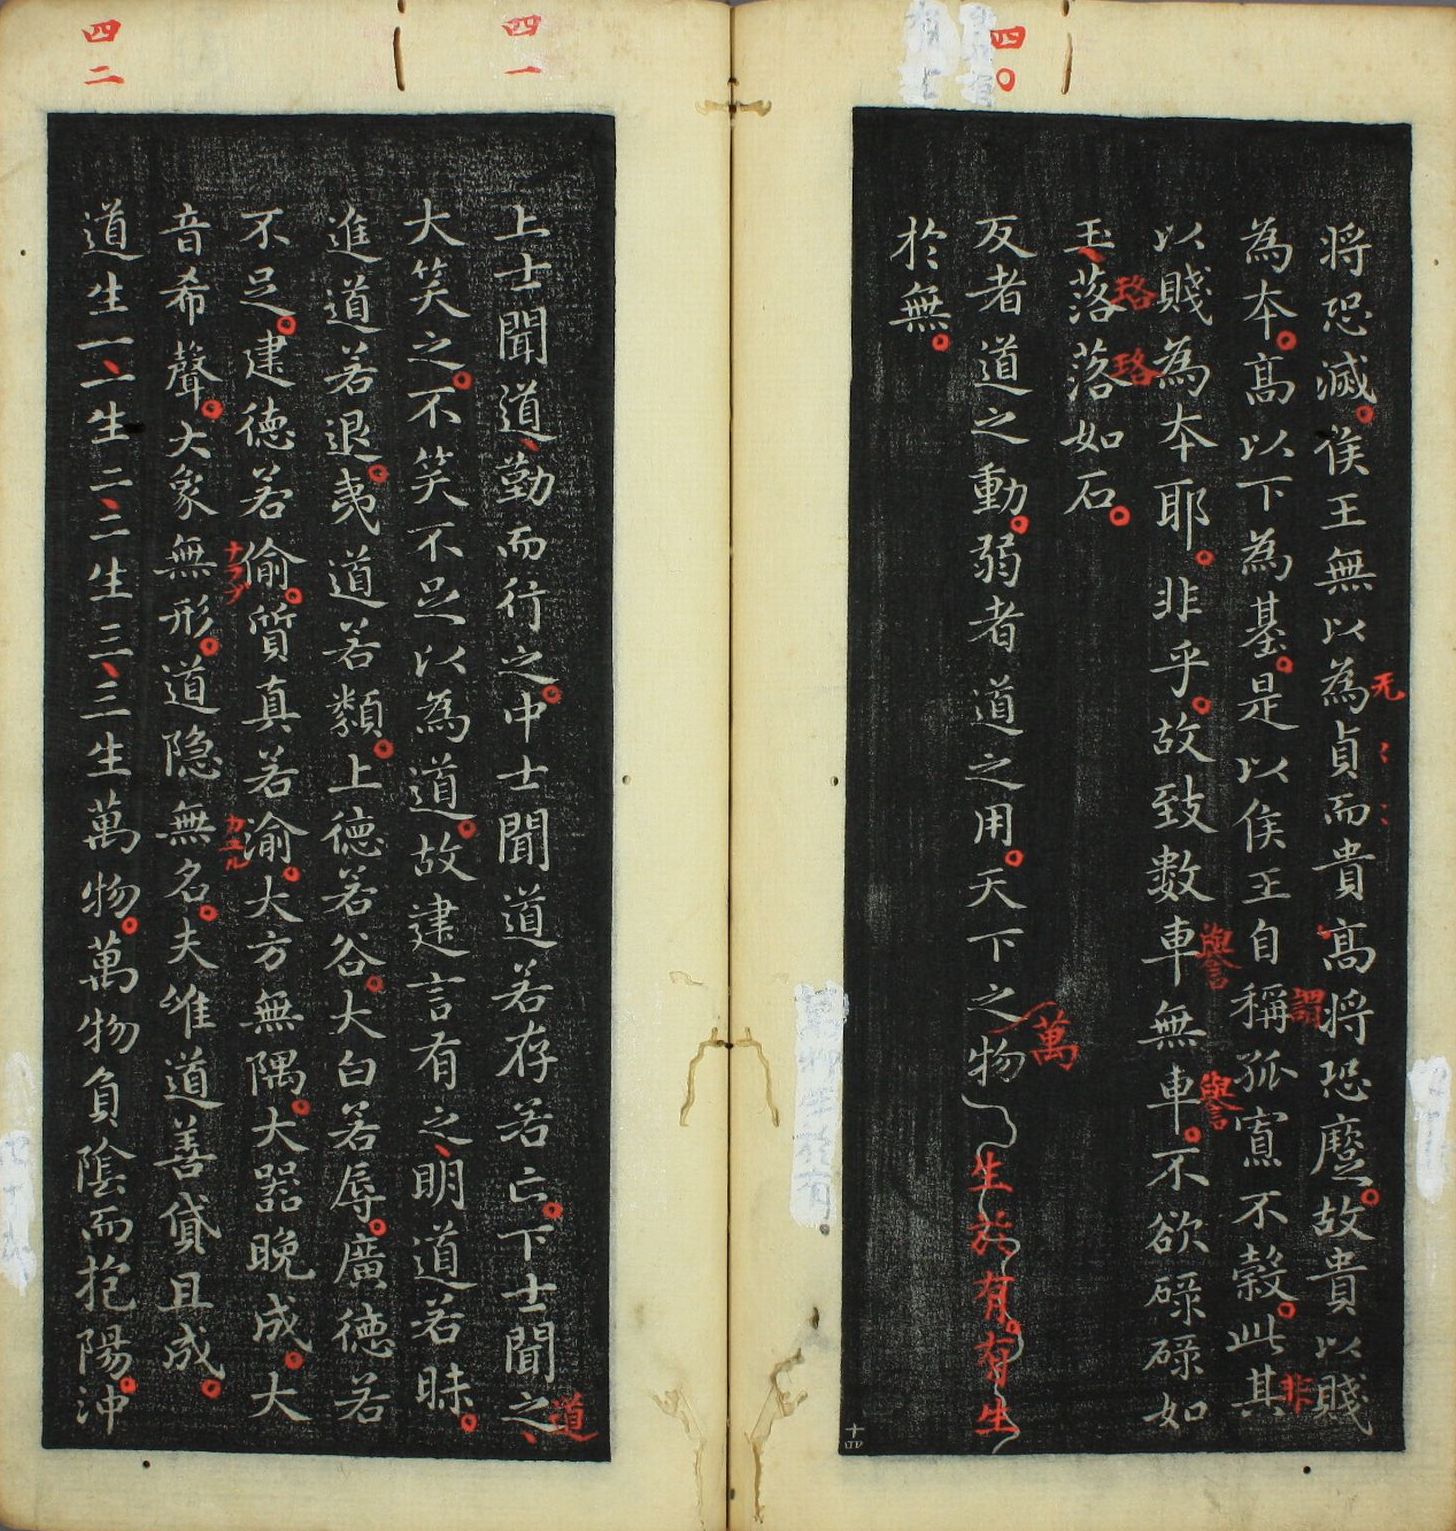 四〇
将恐滅。侯王無以為貞而貴髙将恐蹷。故貴以賤
无
謂
非
為本。髙以下為基。是以侯王自稱孤寡不穀。此其
以賤為本耶。非乎。故致數車無車。不欲碌碌如
譽
譽
玉、落落如石。
珞
珞
反者道之動。弱者道之用。天下之物生於有。有生
萬
於無。
四一
上士聞道、勤而行之。中士聞道若存若亡。下士聞之、
道
大笑之。不笑不足以為道。故建言有之、明道若昧。
進道若退。夷道若纇。上徳若谷。大白若辱。廣徳若
不足。建徳若偷。質真若渝。大方無隅。大器晚成。大
ナラブ
カユル
音希聲。大象無形。道隐無名。夫唯道善貸且成。
四二
道生一、一生二、二生三、三生萬物。萬物負陰而抱陽。沖